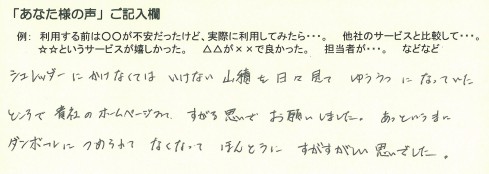 「あなた様の声」ご記入欄
例： 利用する前は〇〇が不安だったけど、実際に利用してみたら・・・。 他社のサービスと比較して・・・。
☆☆というサービスが嬉しかった。 △△が××で良かった。 担当者が・・・。 などなど
シュレッダーにかけなくては いけない 山積を日々見て ゆううつ になっていた
ところで 貴社のホームページ すがる思いで お願いしました。 あっというまに
ダンボールに つめられて なくなって ほんとうに すがすがしい 思いでした。